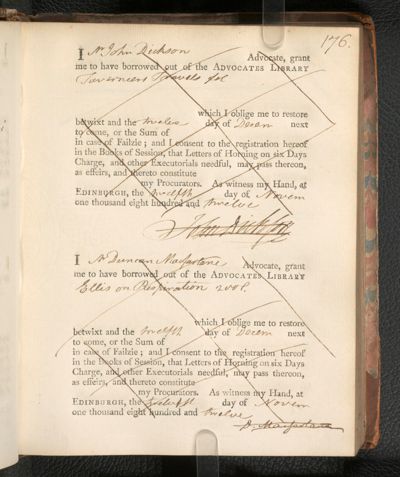 176.
I Mr John Dickson Advocate, grant
me to have borrowed out of the ADVOCATES LIBRARY
Taverneers Travels fol
which I oblige me to restore
betwixt and the twelve day of Decem next
to come, or the Sum of
in case of Failzie ; and I consent to the registration hereof
in the Books of Session, that Letters of Horning on six Days
Charge, and other Executorials needful, may pass thereon,
as effeirs, and thereto constitute
my Procurators. As witness my Hand, at
EDINBURGH, the twelfth day of Novem
one thousand eight hundred and twelve
John Dickson
I Mr Duncan Macfarlane Advocate, grant
me to have borrowed out of the ADVOCATES LIBRARY
Ellis on Respiration 2 vol.
which I oblige me to restore
betwixt and the twelfth day of Decem next
to come, or the Sum of
in case of Failzie ; and I consent to the registration hereof
in the Books of Session, that Letters of Horning on six Days
Charge, and other Executorials needful, may pass thereon,
as effeirs, and thereto constitute
my Procurators. As witness my Hand, at
EDINBURGH, the twelfth day of Novem
one thousand eight hundred and twelve
D. Macfarlane